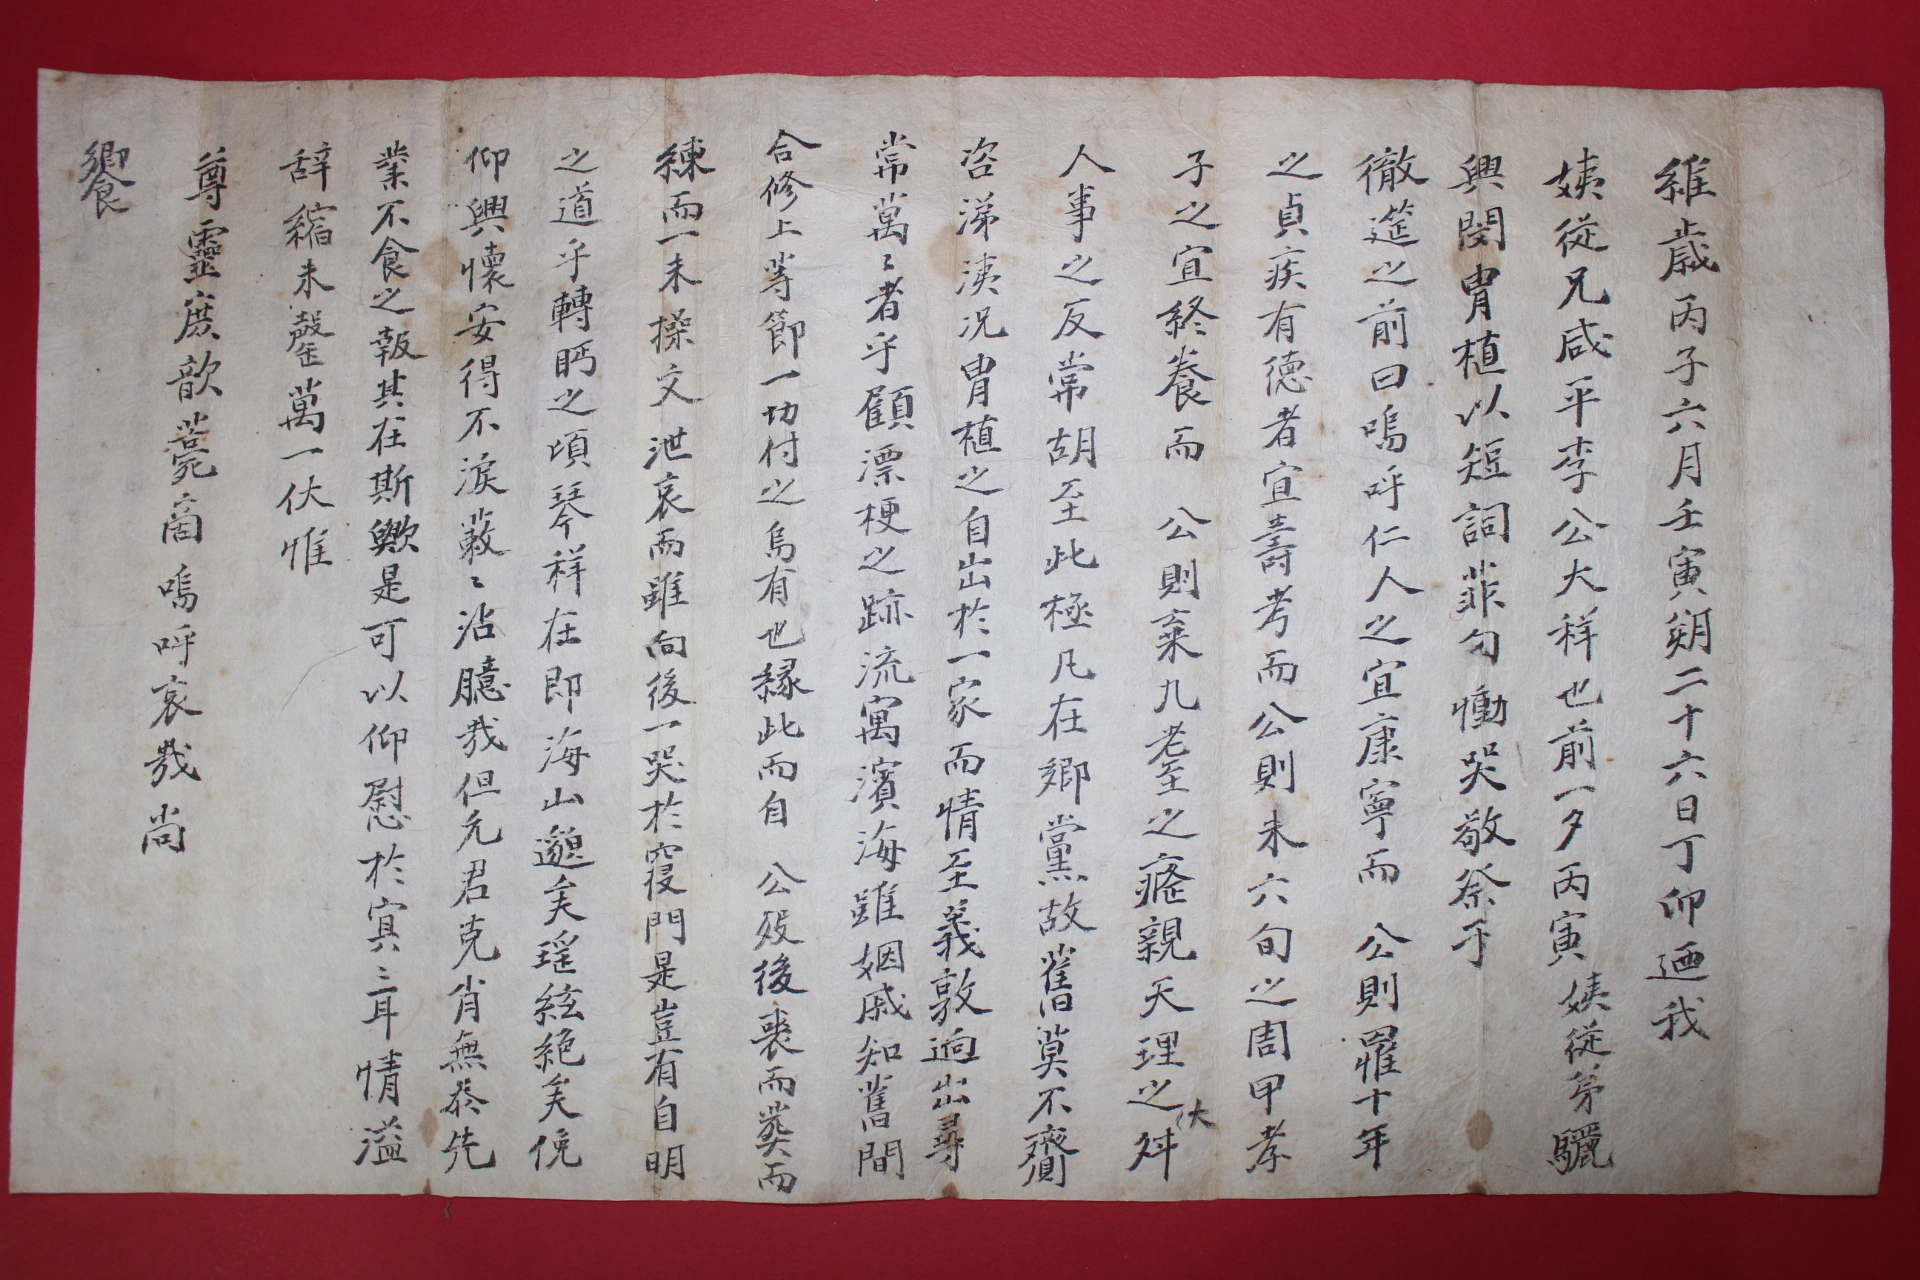 維歲丙子六月壬寅朔二十六日丁卯廼我
姨從兄咸平李公大祥也前一夕丙寅姨從弟驪
興閔胄植以短詞菲勺慟哭敬祭于
徹筵之前曰嗚呼仁人之宜康寧而公則罹十年
之貞疾有德者宜壽考而公則未六旬之周甲孝
子之宜終養而公則棄九耋之癃親天理之大舛
人事之反常胡至此極凡在鄉黨故舊莫不齎
咨涕洟況胄植之自出於一家而情至義敦逈出尋
常萬〻者乎顧漂梗之跡流寓濱海雖姻戚知舊間
合修上等節一切付之烏有也緣此而自公歿後喪而葬而
練而一未操文泄哀而雖向後一哭於寢門是豈有自明
之道乎轉眄之頃琴祥在即海山邈矣瑤絃絶矣俛
仰興懷安得不淚蔌〻沾臆哉但允君克肖無忝先
業不食之報其在斯歟是可以仰慰於冥〻耳情溢
辞縮未罄萬一伏惟
尊靈庶歆菲啚嗚呼哀哉尚
饗